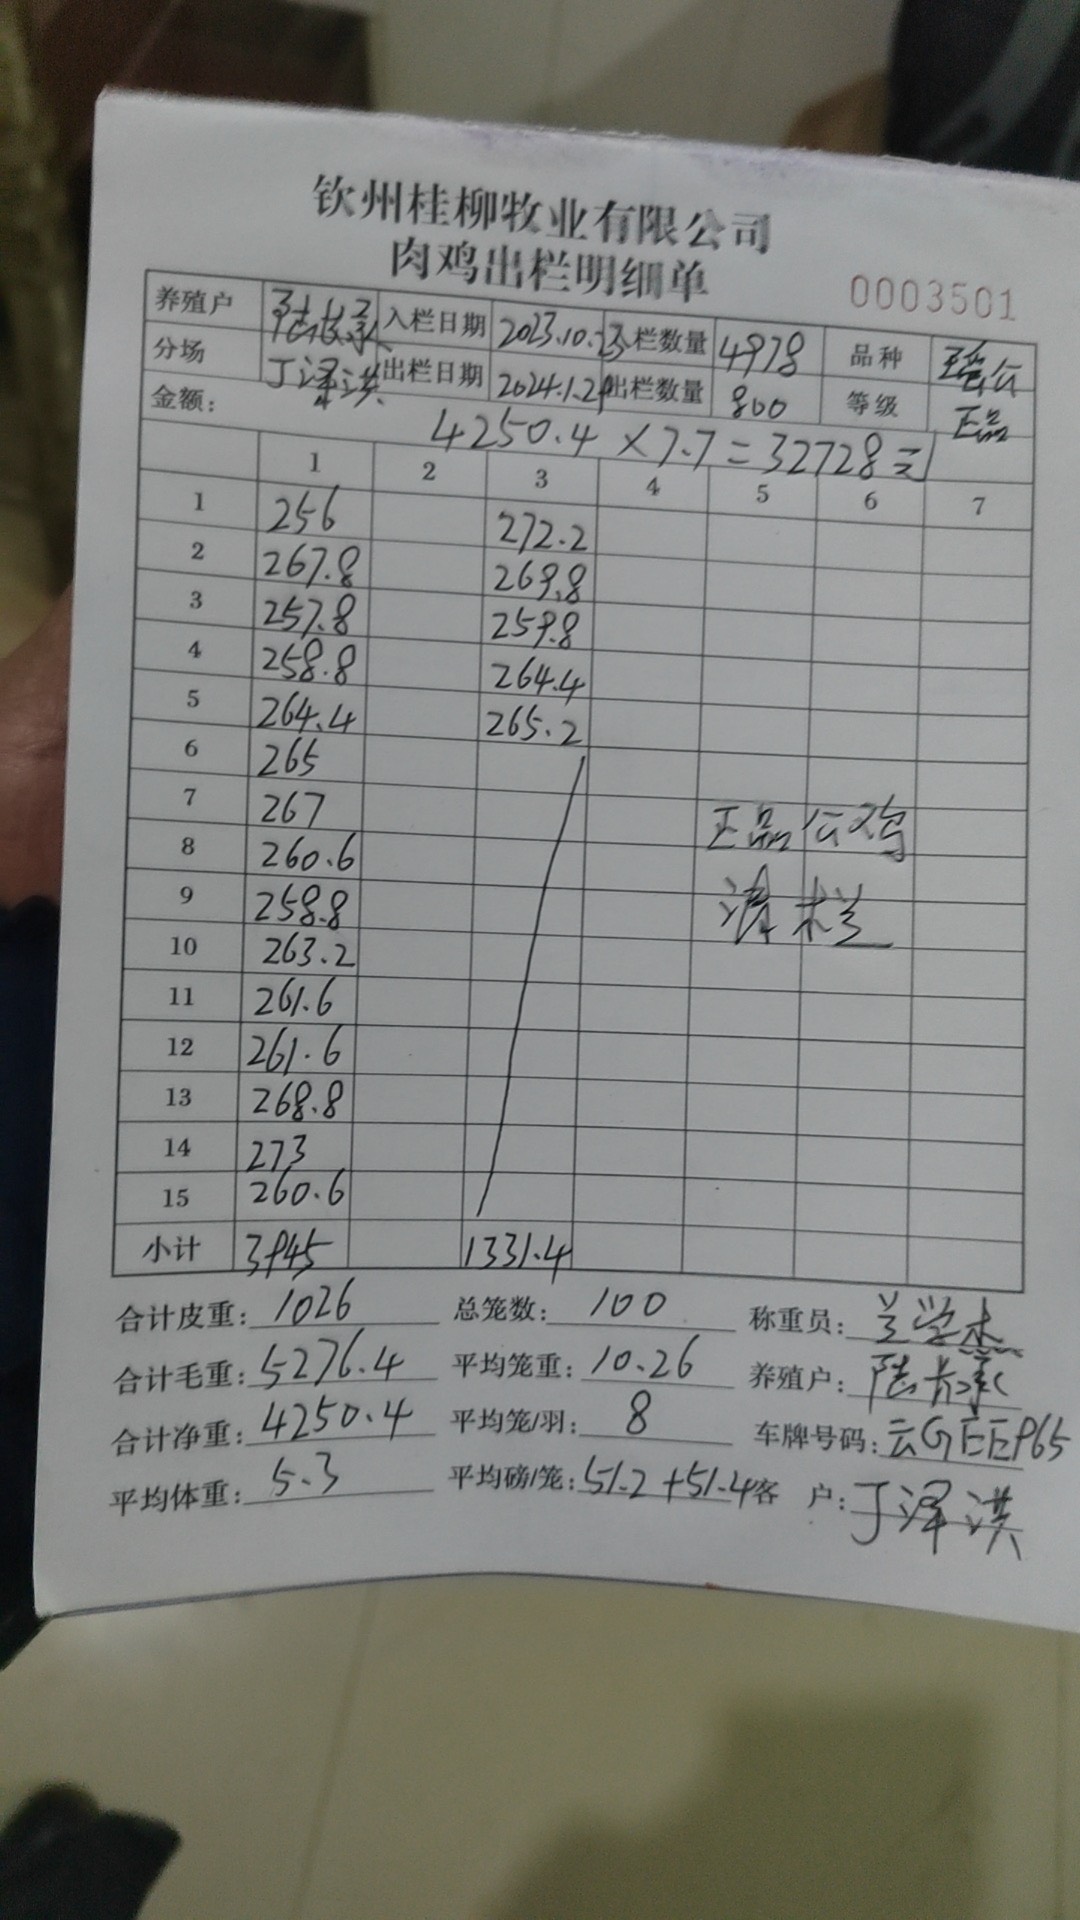 钦州桂柳牧业有限公司
肉鸡出栏明细单
0003501
养殖户 陆长承 入栏日期 2023.10.23 栏数量 4978 品种 瑶公
分场 丁泽洪 出栏日期 2024.1.29 出栏数量 800 等级 正品
金额: 4250.4×7.7=32728元
1 2 3 4 5 6 7
1 256 272.2
2 267.8 269.8
3 257.8 259.8
4 258.8 264.4
5 264.4 265.2
6 265
7 267
8 260.6 正品公鸡
9 258.8 清栏
10 263.2
11 261.6
12 261.6
13 268.8
14 273
15 260.6
小计 3945 1331.4
合计皮重: 1026 总笼数: 100 称重员: 兰学杰
合计毛重: 5276.4 平均笼重: 10.26 养殖户: 陆长承
合计净重: 4250.4 平均笼/羽: 8 车牌号码: 云GEEP65
平均体重: 5.3 平均磅/笼: 51.2+51.4 客户: 丁泽洪